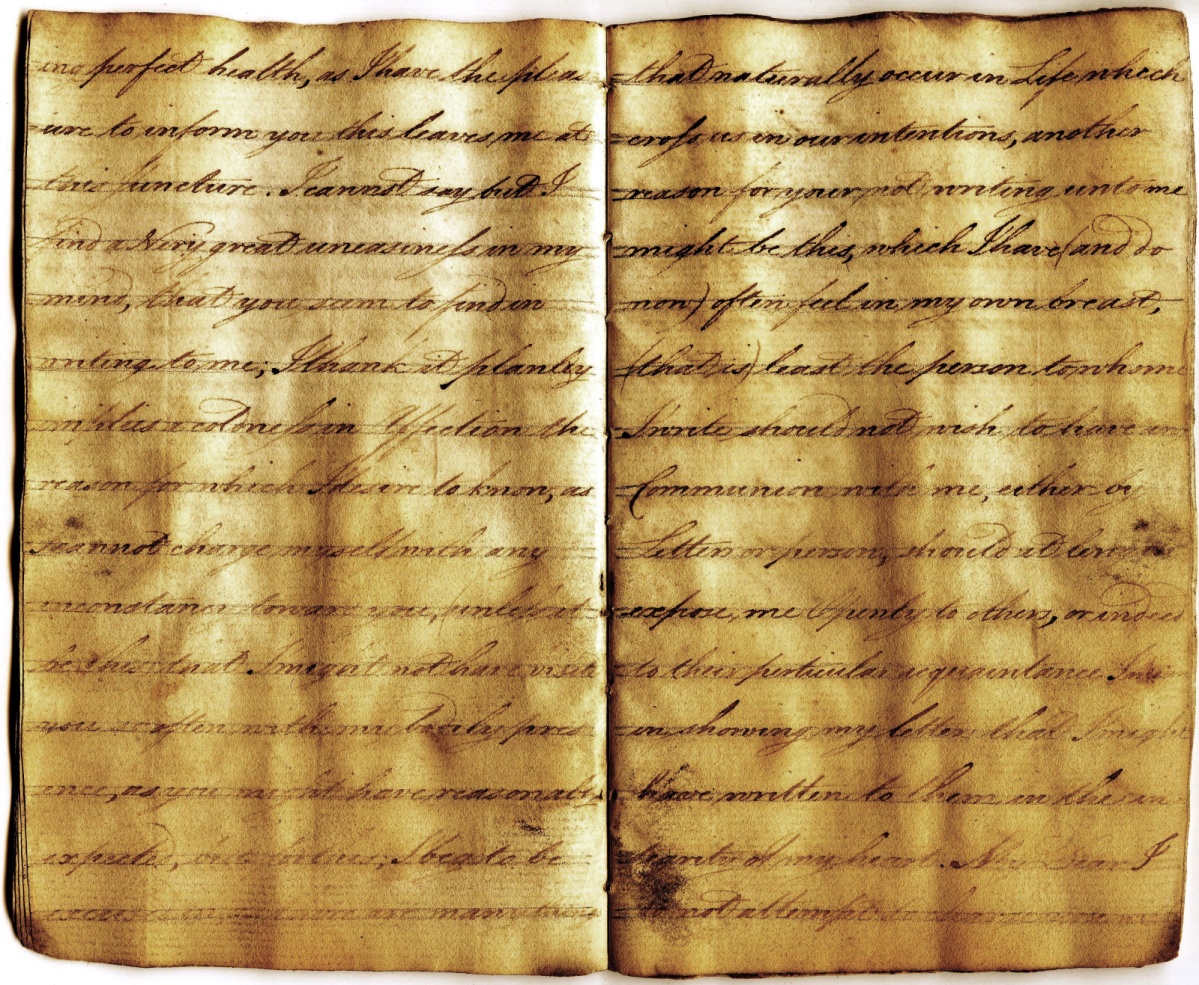 ing perfect health, as I have the pleas
ure to inform you this leaves me at
this juncture. I cannot say but I
find a Very great uneasiness in my
mind, that you seem to find in
writing to me; I thank it planley
implies a coldness in Affection the
reason for which I desire to know, as
I cannot charge myself with any
inconstancy toward you, (unless it
be this that I might not have visit
you so often with my bodily pres
ence, as you might have reasonably
expected, but for this, I beg to be
excused as there are many things
that naturally occur in Life which
cross us in our intentions, another
reason for your not writing unto me
might be this, which I have (and do
now) often feel in my own breast,
(that is) least the person to whome
I write should not wish to have an
Communion with me, either by
Letter or person, should at
expose me Openly to others, or indeed
to their perticular acquaintance
in showing my letters that I might
have written to them in the sin
serity of my heart. Dear I
not attempt to